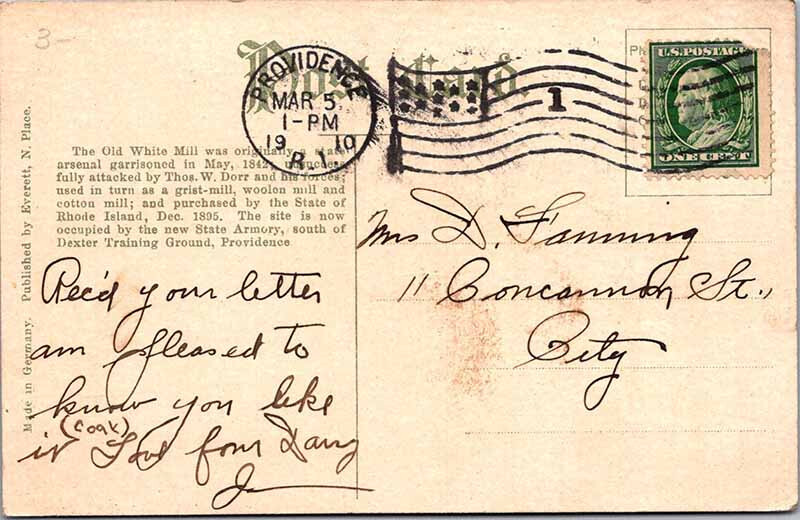 3-
Post Card.
PROVIDENCE
MAR 5
1-PM
1910
R.I.
1
U.S.POSTAGE
ONE CENT
The Old White Mill was originally a state
arsenal garrisoned in May, 1842, unsuccess-
fully attacked by Thos. W. Dorr and his forces;
used in turn as a grist-mill, woolen mill and
cotton mill; and purchased by the State of
Rhode Island, Dec. 1895. The site is now
occupied by the new State Armory, south of
Dexter Training Ground, Providence
Made in Germany. Published by Everett, N. Place.
Rec'd your letter
am pleased to
know you like
it (Coat) Love from
J
Mrs D. Fanning
11 Concannon St.,
City